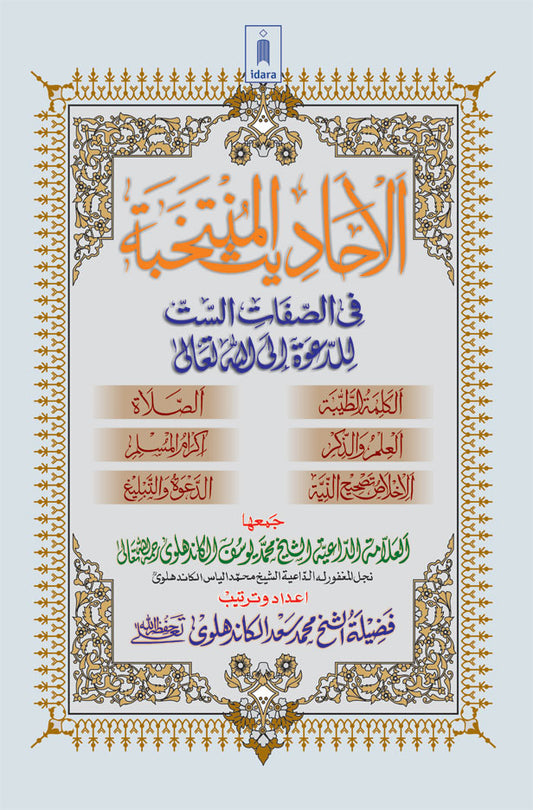 idara
اَلْأَحَادِيث الْمُنْتَخَبَة
فِي الصِّفَاتِ السِّتّ
لِلدَّعْوَة إِلَى اللهِ تَعَالىٰ
اَلْكَلِمَةُ الطَّيِّبَة
اَلصَّلَاة
اَلْعِلْمُ وَالذِّكْر
إِكْرَامُ الْمُسْلِم
اَلْإِخْلَاص تَصْحِيحُ النِّيَّة
الدَّعْوَةُ وَالتَّبْلِيغ
جَمَعَهَا
اَلْعَلَّامَة الدَّاعِيَة الشَّيْخ مُحَمَّد يُوسُف الْكَانْدَهْلَوِي رَحِمَهُ اللهُ تَعَالىٰ
نجل المغفور له الداعية الشيخ محمد الیاس الكاندهلویؒ
اعداد و ترتيب
فَضِيلَة الشَّيْخ مُحَمَّد سَعد الْكَانْدَهْلَوِي حَفِظَهُ اللهُ تَعَالىٰ